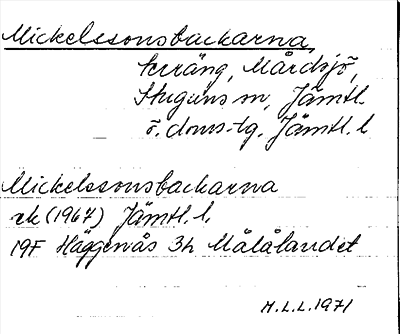 Mickelssonsbackarna,
terräng, Mårdsjö,
Stuguns sn, Jämtl.
ö. doms.-tg. Jämtl. l
Mickelssonsbackarna
ek (1967) Jämtl. l.
19F Häggenås 3h Målålandet
H.L.L. 1971